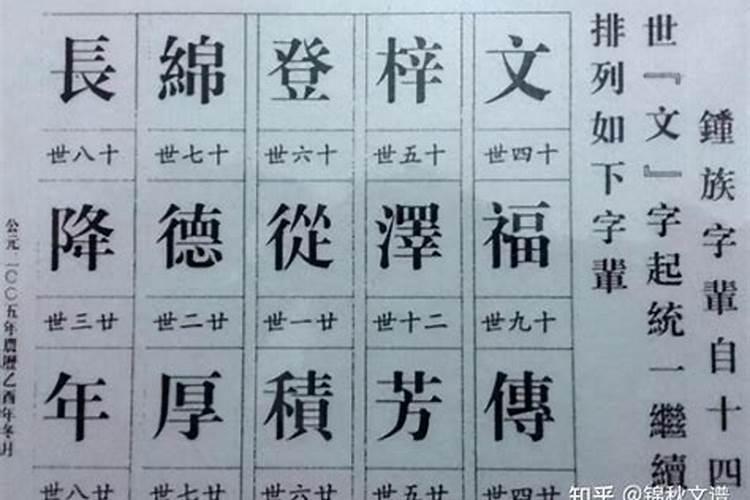 鍾族字輩自十四
世『文』字起統一繼續
排列如下字輩
文 梓 登 綿 長
十四世 十五世 十六世 十七世 十八世
福 澤 從 德 降
十九世 二十世 廿一世 廿二世 廿三世
傳 芳 積 厚 年
廿四世 廿五世 廿六世 廿七世 廿八世
公元二〇〇五年農曆乙酉年冬月
知乎 @锦秋文谱